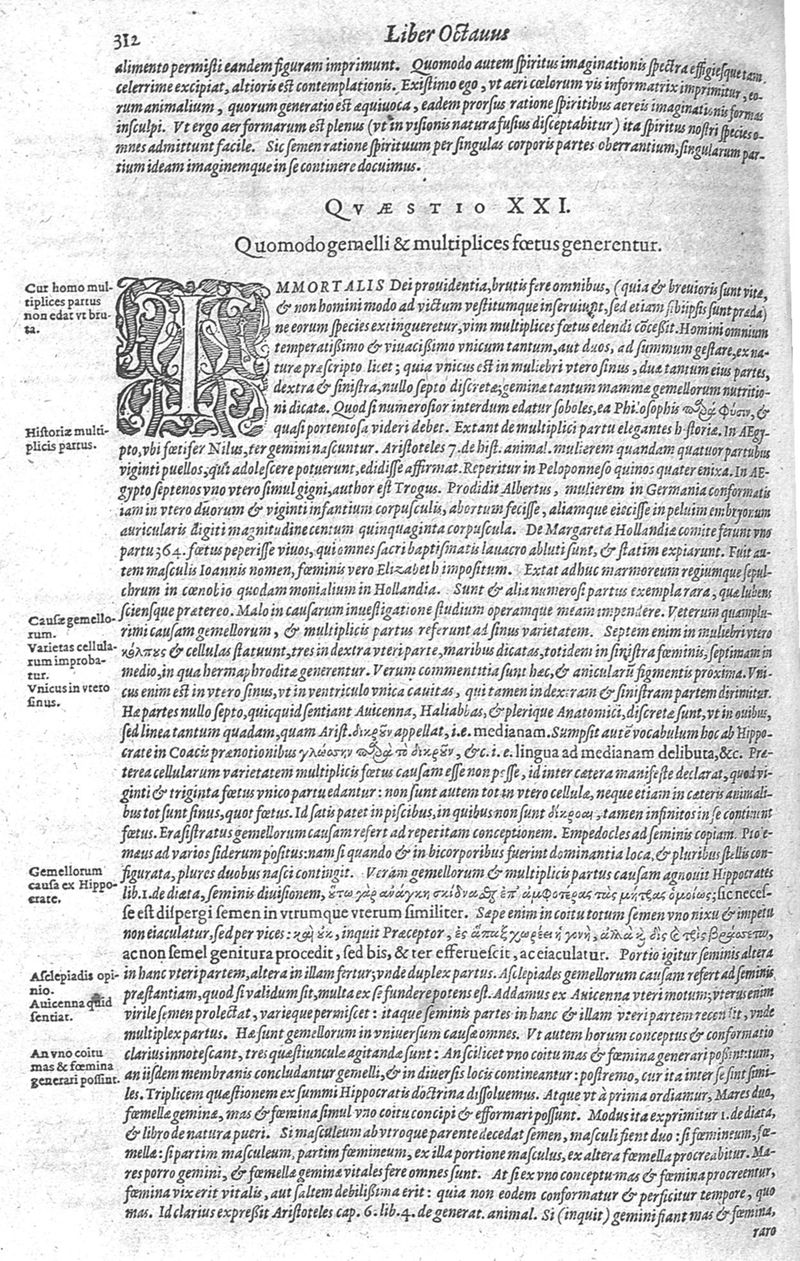 312
Liber Octauus
alimento permisti eandem figuram imprimunt. Quomodo autem spiritus imaginationis spectra effigiesque tam
celerrime excipiat, altioris est contemplationis. Existimo ego, vt aeri cœlorum vis informatrix imprimitur, eo-
rum animalium, quorum generatio est æquiuoca, eadem prorsus ratione spiritibus aereis imaginationis formas
insculpi. Vt ergo aer formarum est plenus (vt in visionis natura fusius disceptabitur) ita spiritus nostri species o-
mnes admittunt facile. Sic semen ratione spirituum per singulas corporis partes oberrantium, singularum par-
tium ideam imaginemque in se continere docuimus.
QVÆSTIO XXI.
Quomodo gemelli & multiplices fœtus generentur.
Cur homo mul-
tiplices partus
non edat vt bru-
ta.
IMMORTALIS Dei prouidentia, brutis fere omnibus, (quia & breuioris sunt vitæ,
& non homini modo ad victum vestitumque inseruiunt, sed etiam sibiipsis sunt præda)
ne eorum species extingueretur, vim multiplices fœtus edendi cōcessit. Homini omnium
temperatissimo & viuacissimo vnicum tantum, aut duos, ad summum gestare, ex na-
turæ præscripto licet; quia vnicus est in muliebri vtero sinus, duæ tantum eius partes,
dextra & sinistra, nullo septo discretæ; geminæ tantum mammæ gemellorum nutritio-
ni dicatæ. Quod si numerosior interdum edatur soboles, ea Philosophis παρὰ φύσιν, &
quasi portentosa videri debet. Extant de multiplici partu elegantes historiæ. In AEgy-
Historiæ multi-
plicis partus.
pto, vbi fœtifer Nilus, ter gemini nascuntur. Aristoteles 7. de hist. animal. mulierem quandam quatuor partubus
viginti puellos, qui adolescere potuerunt, edidisse affirmat. Reperitur in Peloponneso quinos quater enixa. In AE-
gypto septenos vno vtero simul gigni, author est Trogus. Prodidit Albertus, mulierem in Germania conformatis
iam in vtero duorum & viginti infantium corpusculis, abortum fecisse, aliamque eiecisse in peluim embryonum
auricularis digiti magnitudine centum quinquaginta corpuscula. De Margareta Hollandiæ comite ferunt vno
partu 364. fœtus peperisse viuos, qui omnes sacri baptismatis lauacro abluti sunt, & statim expiarunt. Fuit au-
tem masculis Ioannis nomen, fœminis vero Elizabeth impositum. Extat adhuc marmoreum regiumque sepul-
chrum in cœnobio quodam monialium in Hollandia. Sunt & alia numerosi partus exempla rara, quæ lubens
sciensque prætereo. Malo in causarum inuestigatione studium operamque meam impendere. Veterum quamplu-
Causæ gemello-
rum.
rimi causam gemellorum, & multiplicis partus referunt ad sinus varietatem. Septem enim in muliebri vtero
Varietas cellula-
rum improba-
tur.
κόλπους & cellulas statuunt, tres in dextra vteri parte, maribus dicatas, totidem in sinistra fœminis, septimam in
medio, in qua hermaphroditæ generentur. Verum commentitia sunt hæc, & anicularū figmentis proxima. Vni-
Vnicus in vtero
sinus.
cus enim est in vtero sinus, vt in ventriculo vnica cauitas, qui tamen in dextram & sinistram partem dirimitur.
Hæ partes nullo septo, quicquid sentiant Auicenna, Haliabbas, & plerique Anatomici, discretæ sunt, vt in ouibus,
sed linea tantum quadam, quam Arist. δικροῦν appellat, i.e. medianam. Sumpsit autē vocabulum hoc ab Hippo-
crate in Coacis prænotionibus γλώσσην παρὰ τὸ δικροῦν, &c. i. e. lingua ad medianam delibuta, &c. Præ-
terea cellularum varietatem multiplicis fœtus causam esse non posse, id inter cætera manifeste declarat, quod vi-
ginti & triginta fœtus vnico partu edantur: non sunt autem tot in vtero cellulæ, neque etiam in cæteris animali-
bus tot sunt sinus, quot fœtus. Id satis patet in piscibus, in quibus non sunt δίκροαι, tamen infinitos in se continent
fœtus. Erasistratus gemellorum causam refert ad repetitam conceptionem. Empedocles ad seminis copiam. Ptole-
mæus ad varios siderum positus: nam si quando & in bicorporibus fuerint dominantia loca, & pluribus stellis con-
figurata, plures duobus nasci contingit. Veram gemellorum & multiplicis partus causam agnouit Hippocrates
Gemellorum
causa ex Hippo-
crate.
lib. 1. de diæta, seminis diuisionem, οὕτω γὰρ ἀνάγκη σκίδνασθαι ἐπ' ἀμφοτέρας τὰς μήτρας ὁμοίως; sic neces-
se est dispergi semen in vtrumque vterum similiter. Sæpe enim in coitu totum semen vno nixu & impetu
non eiaculatur, sed per vices: καὶ οὐκ, inquit Præceptor, ἐς ἅπαξ χωρέει ἡ γονὴ, ἀλλὰ καὶ δὶς & τρὶς βράσσεται,
ac non semel genitura procedit, sed bis, & ter efferuescit, ac eiaculatur. Portio igitur seminis altera
Asclepiadis opi-
nio.
in hanc vteri partem, altera in illam fertur; vnde duplex partus. Asclepiades gemellorum causam refert ad seminis
præstantiam, quod si validum sit, multa ex se fundere potens est. Addamus ex Auicenna vteri motum; vterus enim
Auicenna quid
sentiat.
virile semen prolectat, varieque permiscet: itaque seminis partes in hanc & illam vteri partem recondit, vnde
multiplex partus. Hæ sunt gemellorum in vniuersum causæ omnes. Vt autem horum conceptus & conformatio
An vno coitu
mas & fœmina
generari possint.
clarius innotescant, tres quæstiunculæ agitandæ sunt: An scilicet vno coitu mas & fœmina generari possint: tum,
an iisdem membranis concludantur gemelli, & in diuersis locis contineantur: postremo, cur ita inter se sint simi-
les. Triplicem quæstionem ex summi Hippocratis doctrina dissoluemus. Atque vt à prima ordiamur, Mares duo,
fœmellæ geminæ, mas & fœmina simul vno coitu concipi & efformari possunt. Modus ita exprimitur 1. de diæta,
& libro de natura pueri. Si masculeum ab vtroque parente decedat semen, masculi fient duo: si fœmineum, fœ-
mellæ: si partim masculeum, partim fœmineum, ex illa portione masculus, ex altera fœmella procreabitur. Ma-
res porro gemini, & fœmellæ geminæ vitales fere omnes sunt. At si ex vno conceptu mas & fœmina procreentur,
fœmina vix erit vitalis, aut saltem debilissima erit: quia non eodem conformatur & perficitur tempore, quo
mas. Id clarius expressit Aristoteles cap. 6. lib. 4. de generat. animal. Si (inquit) gemini fiant mas & fœmina,
raro